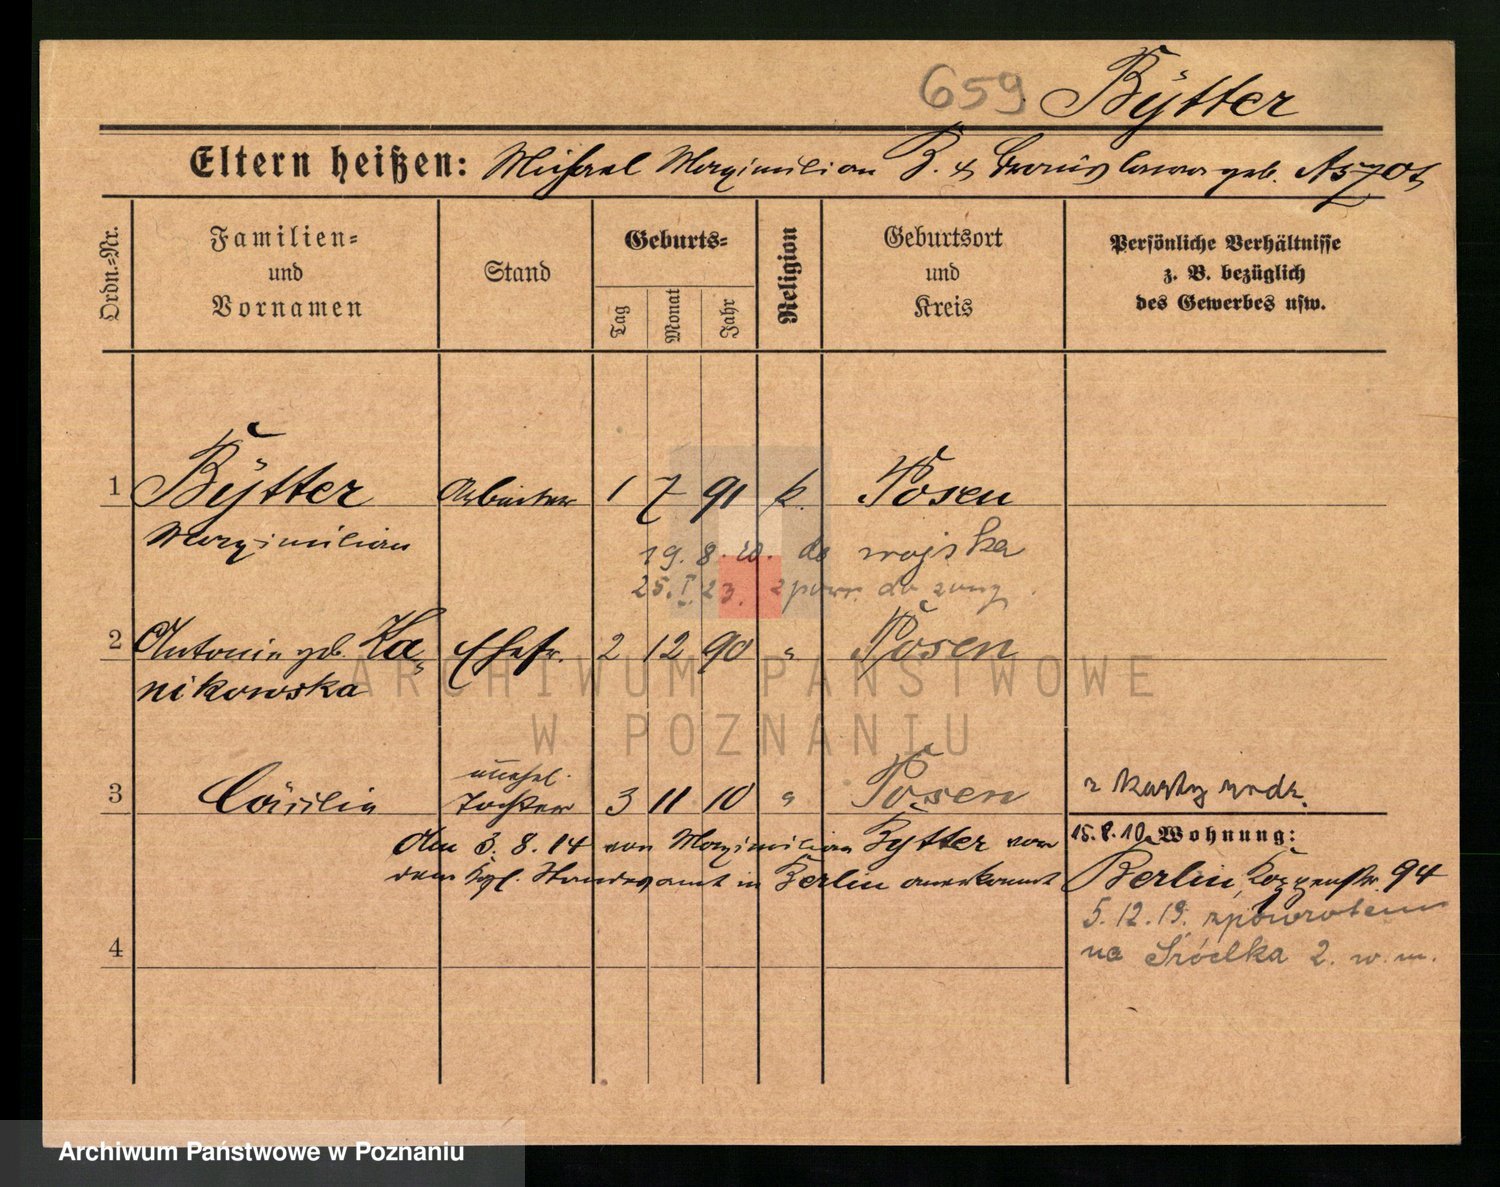 659 Bÿtter
Eltern heißen: Michael Maximilian B. & Bronislawa geb.
Ordn.-Nr.
Familien-
und
Vornamen
Stand
Geburts-
Tag
Monat
Jahr
Religion
Geburtsort
und
Kreis
Persönliche Verhältnisse
z. B. bezüglich
des Gewerbes usw.
1 Bÿtter Arbeiter 1 7 91 k. Posen
Maximilian
19.8.20. do wojska
25.I.23. z powr. do
2 Antonie geb. Ka„ Ehefr. 2 12 90 " Posen
nikowska
unehel.
3 Cäcilia Tochter 3 11 10 " Posen
z karty rodz.
Am 3.8.14 von Maximilian Bytter vor
dem Kgl. Standesamt in Berlin anerkannt
15.8.19. Wohnung:
Berlin, Koppenstr. 94
5.12.19. zpowrotem
na Śródka 2. w. m.
4
ARCHIWUM PAŃSTWOWE
W POZNANIU
Archiwum Państwowe w Poznaniu